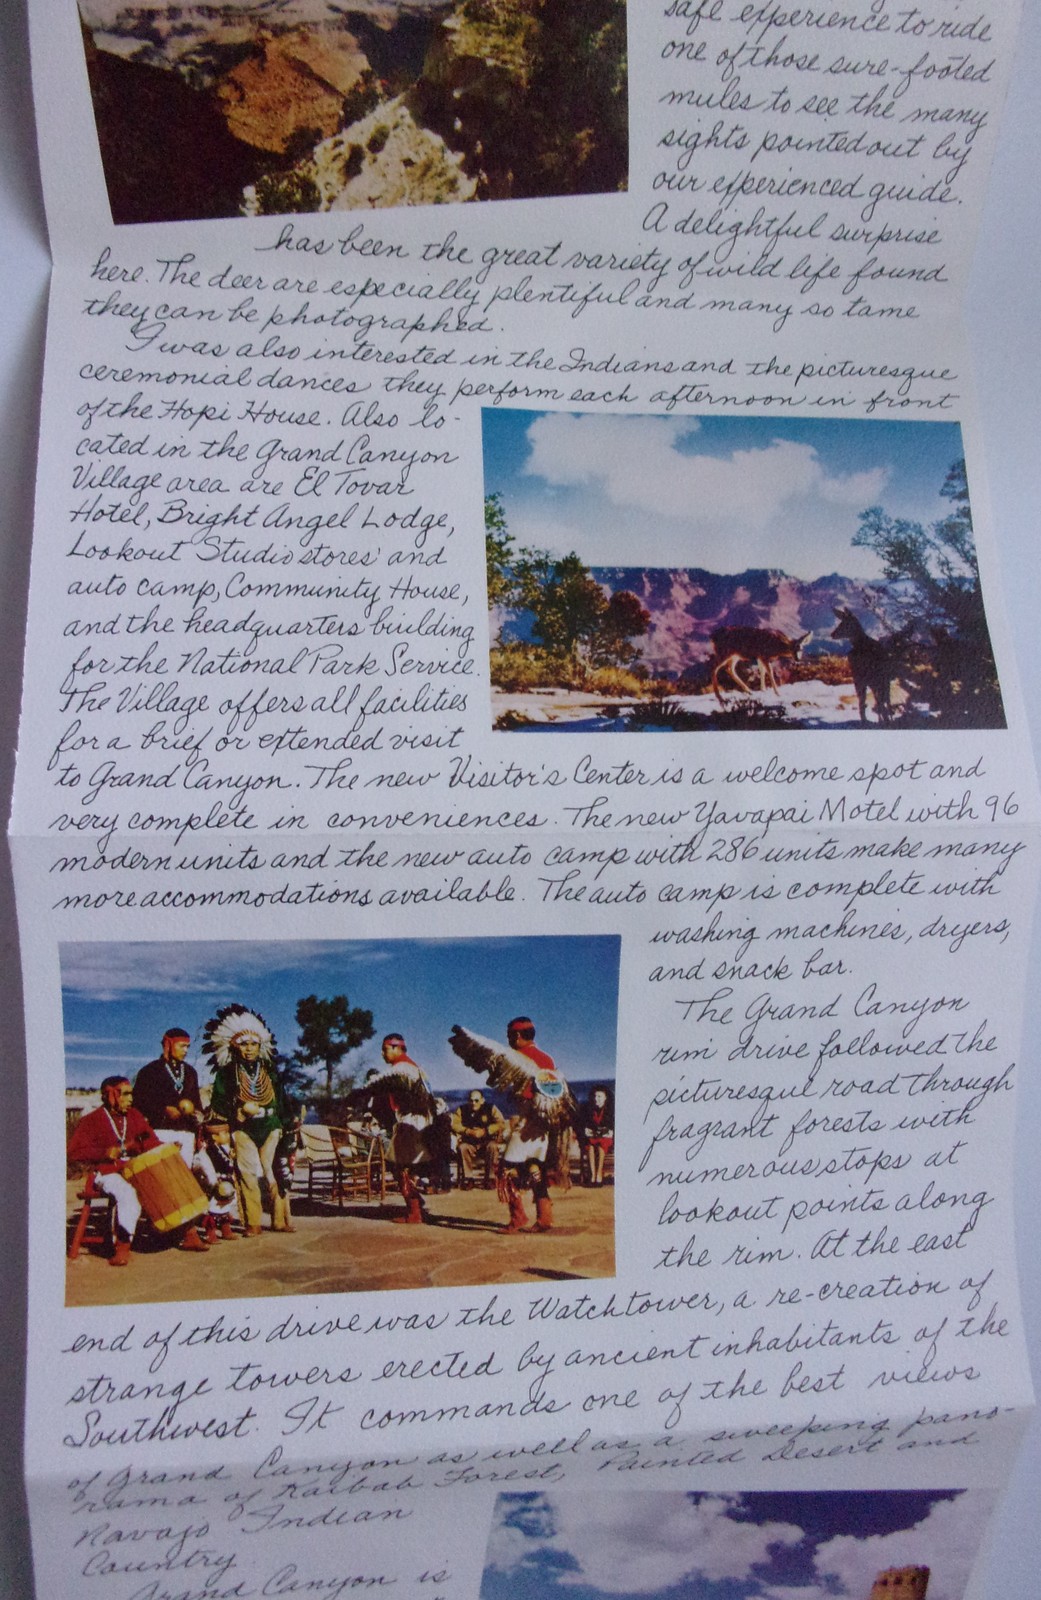 safe experience to ride
one of those sure-footed
mules to see the many
sights pointed out by
our experienced guide.
A delightful surprise
has been the great variety of wild life found
here. The deer are especially plentiful and many so tame
they can be photographed.
I was also interested in the Indians and the picturesque
ceremonial dances they perform each afternoon in front
of the Hopi House. Also lo-
cated in the Grand Canyon
Village area are El Tovar
Hotel, Bright Angel Lodge,
Lookout Studio stores and
auto camp, Community House,
and the headquarters building
for the National Park Service.
The Village offers all facilities
for a brief or extended visit
to Grand Canyon. The new Visitor's Center is a welcome spot and
very complete in conveniences. The new Yavapai Motel with 96
modern units and the new auto camp with 286 units make many
more accommodations available. The auto camp is complete with
washing machines, dryers,
and snack bar.
The Grand Canyon
rim drive followed the
picturesque road through
fragrant forests with
numerous stops at
lookout points along
the rim. At the east
end of this drive was the Watchtower, a re-creation of
strange towers erected by ancient inhabitants of the
Southwest. It commands one of the best views
of Grand Canyon as well as a sweeping pano-
rama of Kaibab Forest, Painted Desert and
Navajo Indian
Country.
Grand Canyon is